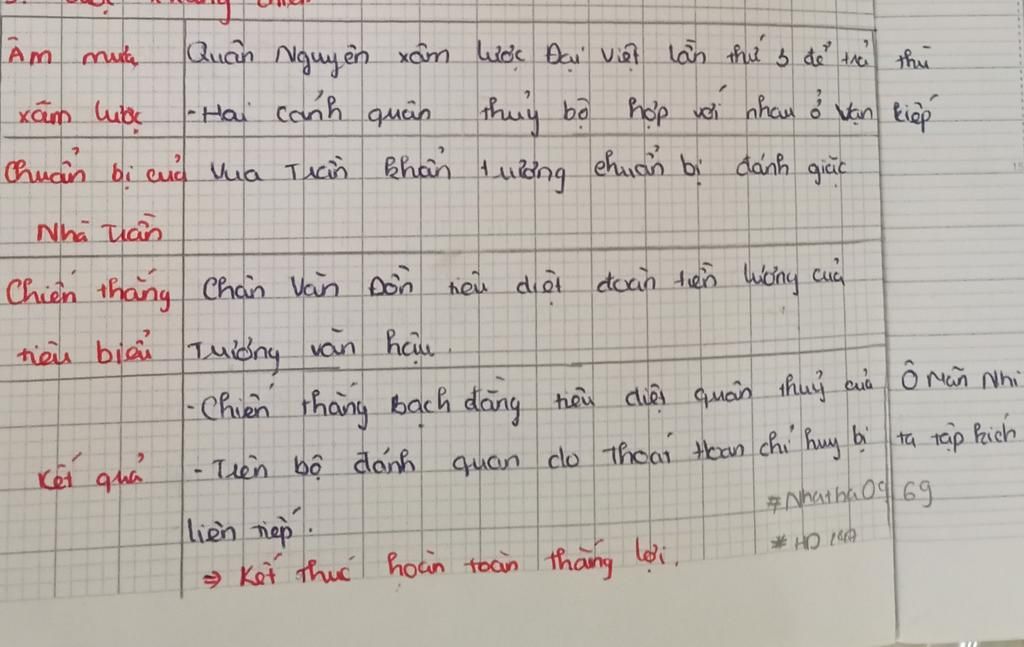 Âm mưu Quân Nguyên xâm lược Đại Việt lần thứ 3 để trả thù
xâm lược - Hai cánh quân thuỷ bộ hợp với nhau ở Vạn kiếp
Chuẩn bị cuả Vua Trần Khẩn trương chuẩn bị đánh giặc
Nhà Trần
Chiến thắng Chặn Vân Đồn tiêu diệt đoàn tiền lương cuả
tiêu biểu Trương văn hậu.
- Chiến thắng bạch đằng tiêu diệt quân thuỷ cuả Ô Mãn Nhi
Kết quả - Trên bộ đánh quan do Thoát Hoan chỉ huy bị ta tập kích
liên tiếp.
⇒ Kết thúc hoàn toàn thắng lợi.
#Nhatha0969